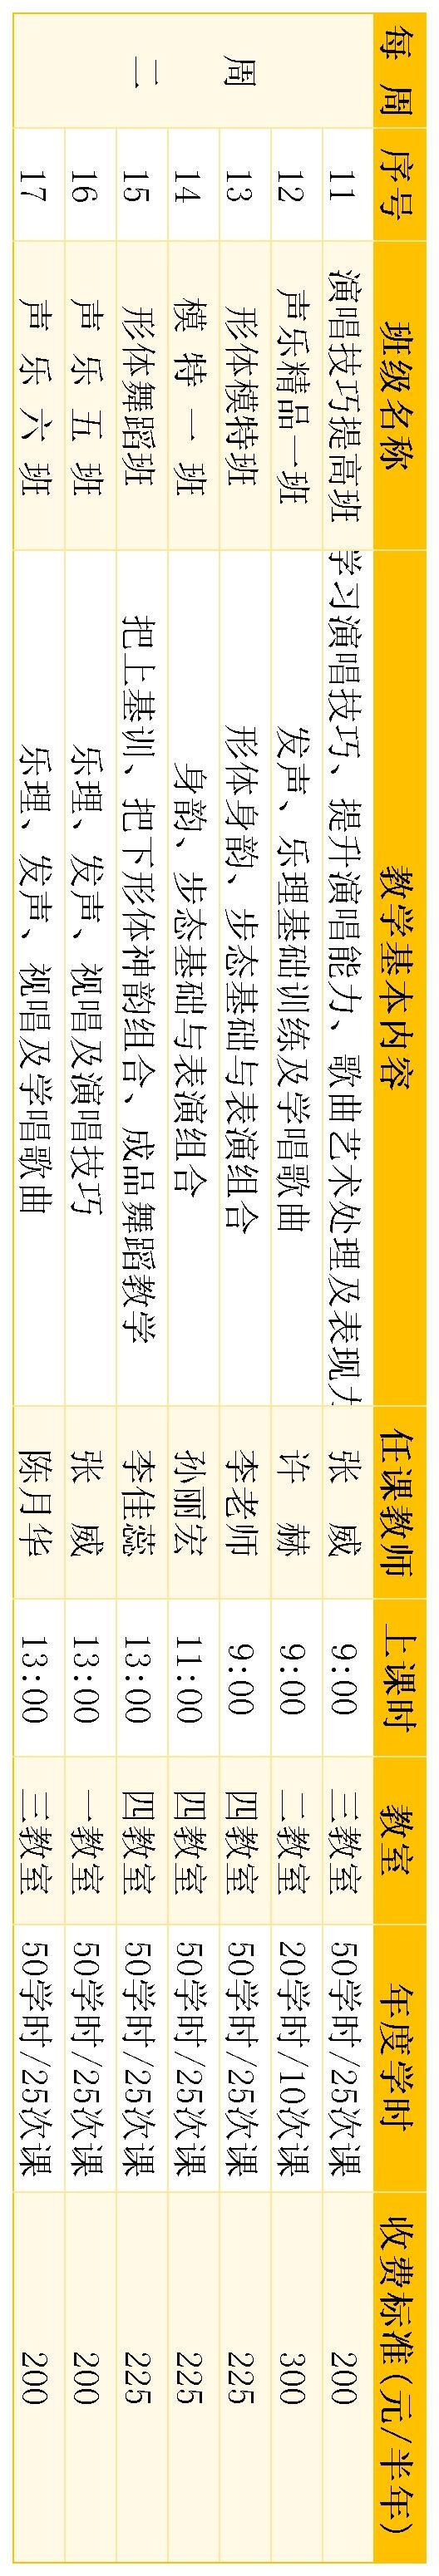 每 周 序号 班级名称 教学基本内容 任课教师 上课时 教室 年度学时 收费标准(元/半年)
周二
11 演唱技巧提高班 学习演唱技巧、提升演唱能力、歌曲艺术处理及表现力 张 威 9:00 三教室 50学时/25次课 200
12 声乐精品一班 发声、乐理基础训练及学唱歌曲 许 赫 9:00 二教室 20学时/10次课 300
13 形体模特班 形体身韵、步态基础与表演组合 李老师 9:00 四教室 50学时/25次课 225
14 模 特 一 班 身韵、步态基础与表演组合 孙丽宏 11:00 四教室 50学时/25次课 225
15 形体舞蹈班 把上基训、把下形体神韵组合、成品舞蹈教学 李佳蕊 13:00 四教室 50学时/25次课 225
16 声 乐 五 班 乐理、发声、视唱及演唱技巧 张 威 13:00 一教室 50学时/25次课 200
17 声 乐 六 班 乐理、发声、视唱及学唱歌曲 陈月华 13:00 三教室 50学时/25次课 200